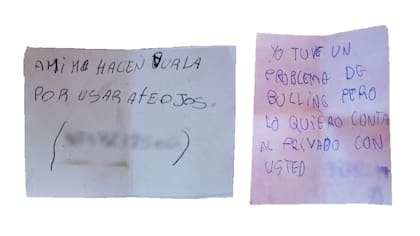 AMIME HACEN BURLA
POR USAR ATEOJOS.
YO TUVE UN
PROBLEMA DE
BULLING PERO
LO QUIERO CONTA
AL PRIVADO CON
USTED